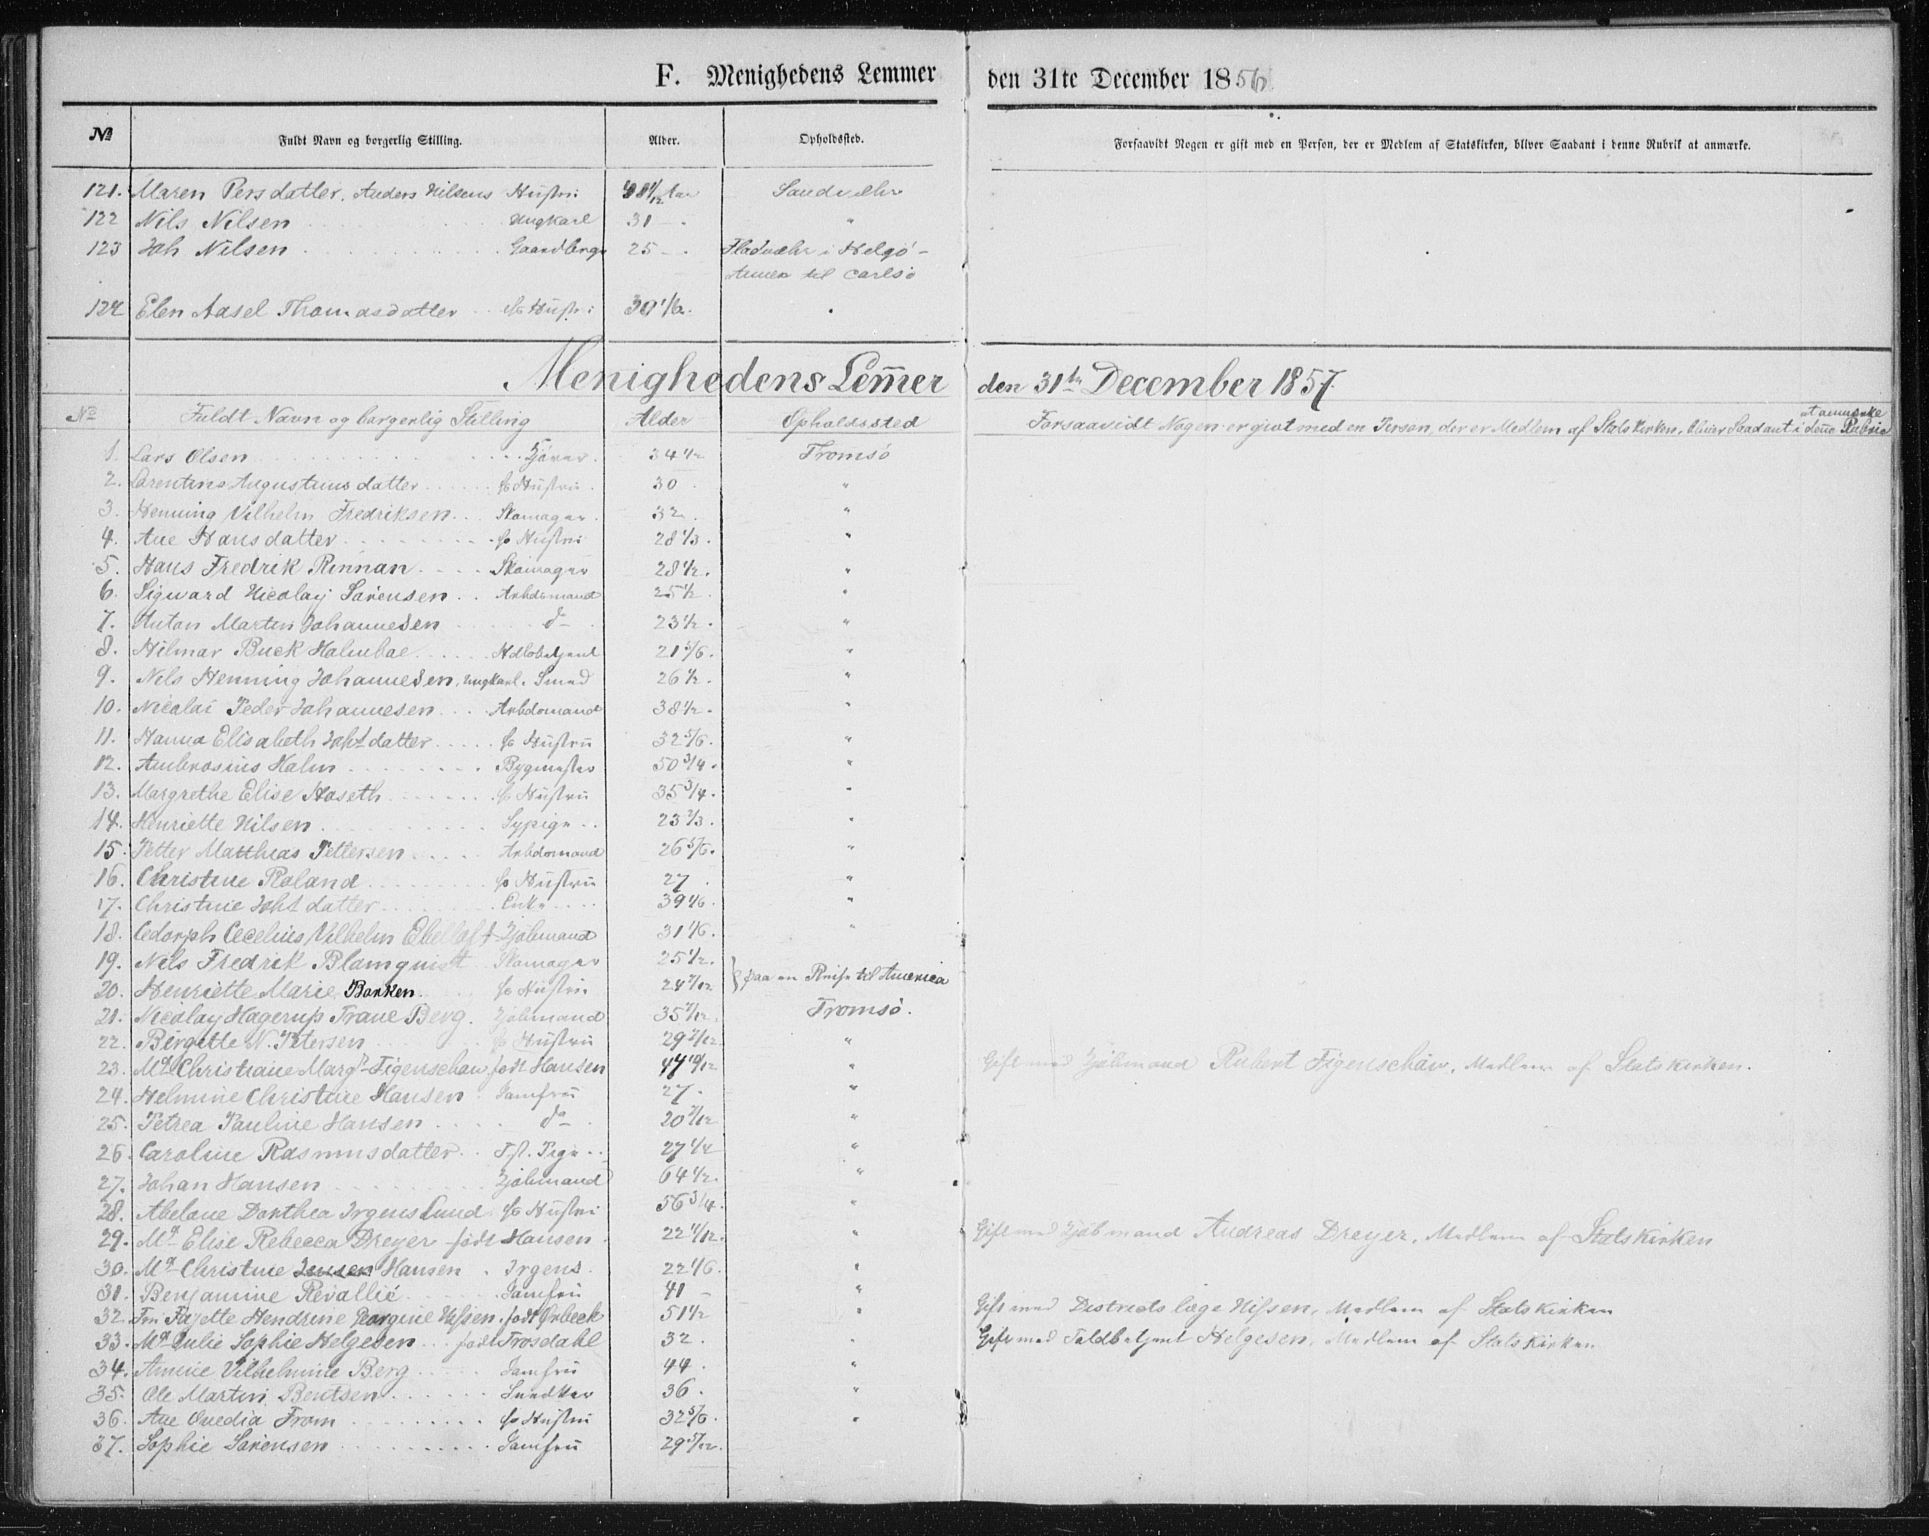 F. Menighedens Lemmer den 31te December 1856
№ Fuldt Navn og borgerlig Stilling. Alder. Opholdssted. Forsaavidt Nogen er gift med en Person, der er Medlem af Statskirken, bliver Saadant i denne Rubrik at anmærke.
121. Maren Persdatter, Anders Nilsens Hustru
122 Nils Nilsen Ungkarl 31 "
123 Joh Nilsen 25 i Helgø-
Annex til Carlsø
124 Elen Aasel Thomasdatter Hustru 30 1/12
Menighedens Lem̄er den 31te December 1857.
No Fuldt Navn og borgerlig Stilling Alder Opholdssted Forsaavidt Nogen er givt med en Person, der er Medlem af Statskirken, bliver Saadant i denne Rubrik at anmærke
1. Lars Olsen 34 1/2 Tromsø
2. Lorentine Augustinusdatter Hustru 30 "
3. Henning Vilhelm Fredriksen Skomager 32 "
4. Ane Hansdatter Hustru 28 1/3 "
5. Hans Fredrik Rinnan Skomager 28 1/2 "
6. Sigvard Nicolay Sørensen Arbdsmand 25 1/2 "
7. Anton Martin Johannesen do 23 1/2 "
8. Hilmar Buck Halmboe 21 5/6 "
9. Nils Henning Johannesen, Ungkarl, Smed 26 1/2 "
10. Nicolai Peder Johannesen Arbdsmand 38 1/2 "
11. Hanna Elisabeth Johsdatter Hustru 32 5/6 "
12. Ambrosius Halm Bygmester 50 3/4 "
13. Margrethe Elise Hoseth Hustru 35 3/4 "
14. Henriette Nilsen Sypige 23 2/3 "
15. Petter Matthias Pettersen Arbdsmand 26 5/6 "
16. Christine Roland Hustru 27 "
17. Christine Johsdatter Enke 39 1/6 "
18. Cedorph Cecelius Vilhelm Ebeltoft Kjøbmand 31 1/6 "
19. Nels Fredrik Blomquist Skomager 25 1/2
20. Henriette Marie Barken Hustru 24 7/12 } paa en Reise til America
21. Nicolay Hagerup Trane Berg. Kjøbmand 35 7/12 Tromsø.
22. Birgitte N. Petersen Hustru 29 7/12 "
23. Md Christiane Margr Figenschau født Hansen 47 10/12 " Gift med Kjøbmand Rubert Figenschau, Medlem af Statskirken.
24. Helmine Christine Hansen Jomfru 27 "
25. Petrea Pauline Hansen do 20 7/12 "
26. Caroline Rasmusdatter Tjst. Pige 27 1/2 "
27. Johan Hansen Kjøbmand 64 1/2 "
28. Abelone Dorthea Irgens Lund Hustru 56 3/4 "
29. Md Elise Rebecca Dreyer født Hansen 22 1/12 " Gift med Kjøbmand Andreas Dreyer, Medlem af Statskirken
30. Md Christine Jensen Hansen Irgens 22 1/6 "
31. Benjamine Revallie Jomfru 41 "
32. Fru Fayette Hendrine Georgine Nissen født Ørbeck 51 1/2 " Gift med Districtslæge Nissen, Medlem af Statskirken
33. Md Julie Sophie Helgesen født Trosdahl 32 " Gift med Toldbetjent Helgesen, Medlem af Statskirken
34. Amine Vilhelmine Berg Jomfru 44 "
35. Ole Martin Bentsen Snedker 36 "
36. Ane Ovedia From Hustru 32 5/6 "
37. Sophie Sørensen Jomfru 29 5/12